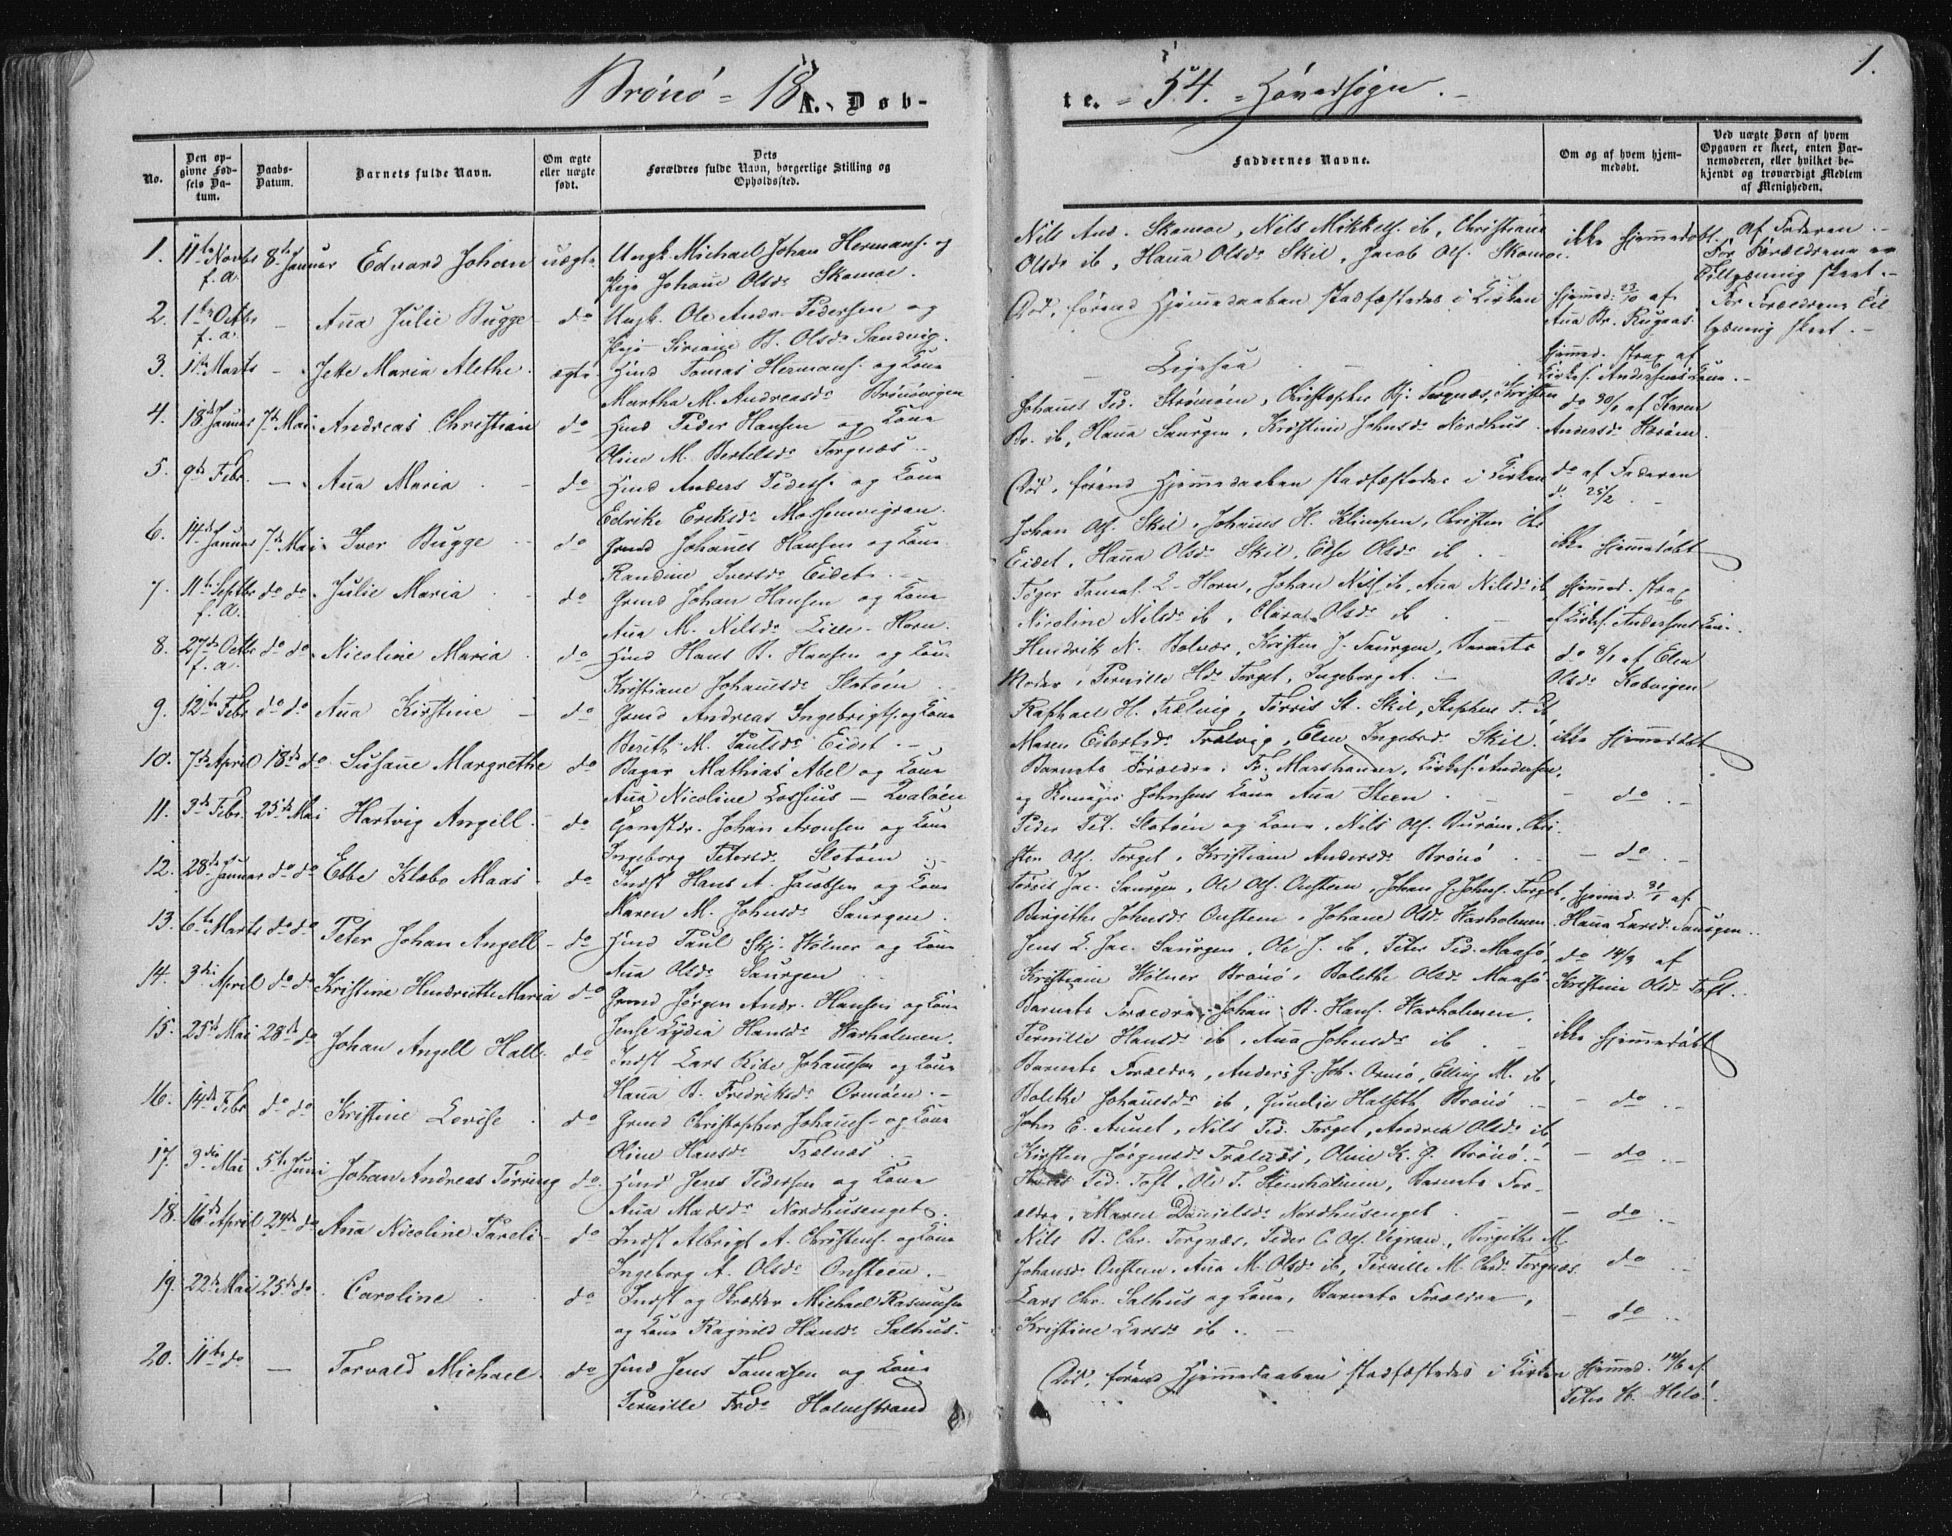 Brönö = 18
A. Døb-
te. = 54. = Hovedsogn.
1.
No.
Den opgivne Fødsels Datum.
Daabs-Datum.
Barnets fulde Navn.
Om ægte eller uægte født.
Dets Forældres fulde Navn, borgerlige Stilling og Opholdssted.
Faddernes Navne.
Om og af hvem hjemmedøbt.
Ved uægte Børn af hvem Opgaven er skeet, enten Barnemoderen, eller hvilket bekjendt og troværdigt Medlem af Menigheden.
1. 11te Novbr f.a. 8de Januar Edvard Johan uægte Ungk. Michael Johan Hermans. og
Pige Johane Olsdr Skomoe.
Nils And. Skomoe, Nils Mikkels. ib, Christiane
Olsdr ib, Hana Olsdr Skil, Jacob Ols. Skomoe.
ikke hjemmedöbt. Af Faderen.
For Forældrene er
Tillysning skeet.
2. 1ste Octbr f.a. - Ana Julie Bugge do Ungk. Ole Andr. Pedersen og
Pige Siriane B. Olsdr Sandvig.
Död, förend Hjemmedaaben stadfæstedes i Kirken
Hjemmed. 23/10 af
Ana Br. Rugaas.
For Forældrene Til
lysning skeet.
3. 1ste Marts - Jette Maria Alethe. ægte Hmd Tomas Hermans. og Kone
Martha M. Andreasdr Brönövigen
Ligesaa
Hjemmed. strax af
Kirkes. Andersens Kone.
4. 18de Januar 7de Mai Andreas Christian do Hmd Peder Hansen og Kone
Oline M. Bertelsdr Torgnæs
Johanes Ped. Strömöen, Christopher Bj. Torgnæs, Kristen
Br. ib, Hana Saurgen, Kristine Johnsdr Nordhus
do 30/1 af Karen
Andersdr Horöen.
5. 9de Febr. - Ana Maria do Hmd Anders Peders. og Kone
Edrike Eriksdr Mosenvigran.
Död, förend Hjemmedaaben stadfæstedes i Kirken
do af Faderen
d. 25/2
6. 14de Januar 7de Mai Iver Bugge do Grmd Johanes Hansen og Kone
Randine Iversdr Eidet.
Johan Ols. Skil, Johanes H. Klimpen, Christen
Eidet, Hana Olsdr Skil, Else Olsdr ib
ikke hjemmedöbt
7. 11te Septbr f.a. do do Julie Maria do Grmd Johan Hansen og Kone
Ana M. Nilsdr Lille-Horn.
Töger Tomas. L-Horn, Johan Nils. ib, Ana Nilsdr ib,
Nicoline Nilsdr ib, Olsdr ib
Hjemmed. strax
af Kirkes. Andersens Kone.
8. 27de Octbr f.a. do do Nicoline Maria do Hmd Hans B. Hansen og Kone
Kristiane Johansdr Slotöen
Hendrik N. Bolvær, Kristen J. Saurgen, Barnets
Moder, Pernille Hdr Torget, Ingeborg A.
do 8/1 af Elen
Olsdr Kobvigen
9. 12te Febr do do Ana Kirstine do Grmd Andreas Ingebrigts. og Kone
Berith M. Paulsdr Eidet.
Raphael H. Trælvig, Törris St. Skil, Stephen T. ib
Maren Eilertsdr Trælvig, Elen Ingebrdr Skil.
ikke hjemmedöbt
10. 7de April 18de do Susane Margrethe do Bager Mathias Abel og Kone
Ana Nicoline Lossius - Qvalöen
Barnets Forældre, Fr. Marshauser, Kirkes. Andersen,
og Johnsens Kone Ana Steen
do
11. 3de Febr. 25de Mai Hartvig Angell do Johan Aronsen og Kone
Ingeborg Petersdr Slotöen
Peder Pet. Slotöen og Kone, Nils Ols. Buröen, Chri-
sten Ols. Torget, Kristiane Andersdr Brönö
do
12. 28de Januar do do Ebbe Klæbo Maas do Indst Hans A. Jacobsen og Kone
Maren M. Johnsdr Saurgen.
Törris Jac. Saurgen, Ole Ols. Onsteen, Johan G. Johns. Torget,
Birgithe Johnsdr Onsteen, Johane Olsdr Horholmen
Hjemmed. 31/1 af
Hana Larsdr Saurgen.
13. 6te Marts do do Peter Johan Angell do Hmd Paul Skj. Wölner og Kone
Ana Olsdr Saurgen
Jens L. Jac. Saurgen, Ole J. ib, Peter Ped. Maasö,
Kristiane Wölner Brönö, Bolethe Olsdr Maasö
do 14/3 af
Kristine Olsdr Toft.
14. 3die April do do Kristine Hendriette Maria do Grmd Jörgen Andr. Hansen og Kone
Jense Lydia Hansdr Horholmen.
Barnets Forældre, Johan B. Hans. Horholmen,
Pernille Hansdr ib, Ana Johnsdr ib
ikke hjemmedöbt
15. 25de Mai 28de do Johan Angell Hall. do Indst Lars Ride Johansen og Kone
Hana B. Fredriksdr Ormöen.
Barnets Forældre, Anders G. Joh. Ormö, Elling M. ib,
Bolethe Johansdr ib, Gundie Halseth Brönö
do
16. 14de Febr do do Kristine Lovise do Grmd Christopher Johanes. og Kone
Oline Hansdr Trælnæs
John E. Aunet, Nils Ped. Torget, Andrea Olsdr ib
Kirsten Jörgensdr Trælnæs, Oline K. G. Brönö.
do
17. 3die Mai 5te Juni Johan Andreas Törring do Hmd Jens Pedersen og Kone
Ana Madsdr Nordhusenget.
Ped. Toft, Ole T. Stenholmen, Barnets For-
ældre, Maren Danielsdr Nordhusenget
do
18. 16de April 24de do Ana Nicoline Pareli do Indst Albrigt A. Christens. og Kone
Ingeborg A. Olsdr Onsteen.
Nils B. Chr. Torgnæs, Peder C. Ols. Vigran, Birgithe M.
Johansdr Onsteen, Ana M. Olsdr ib, Pernille M. Chrdr Torgnæs
do
19. 22de Mai 25de do Caroline do Indst og Skrædder Michael Rasmusen
og Kone Ragnild Hansdr Salhus.
Lars Chr. Salhus og Kone, Barnets Forældre,
Kristine Larsdr ib.
do
20. 11te do - Torvald Michael do Hmd Jens Tomasen og Kone
Pernille Frdr Holmstrand
Död, förend Hjemmedaaben stadfæstedes i Kirken
Hjemmed. 14/6 af
Peter H. Helö.